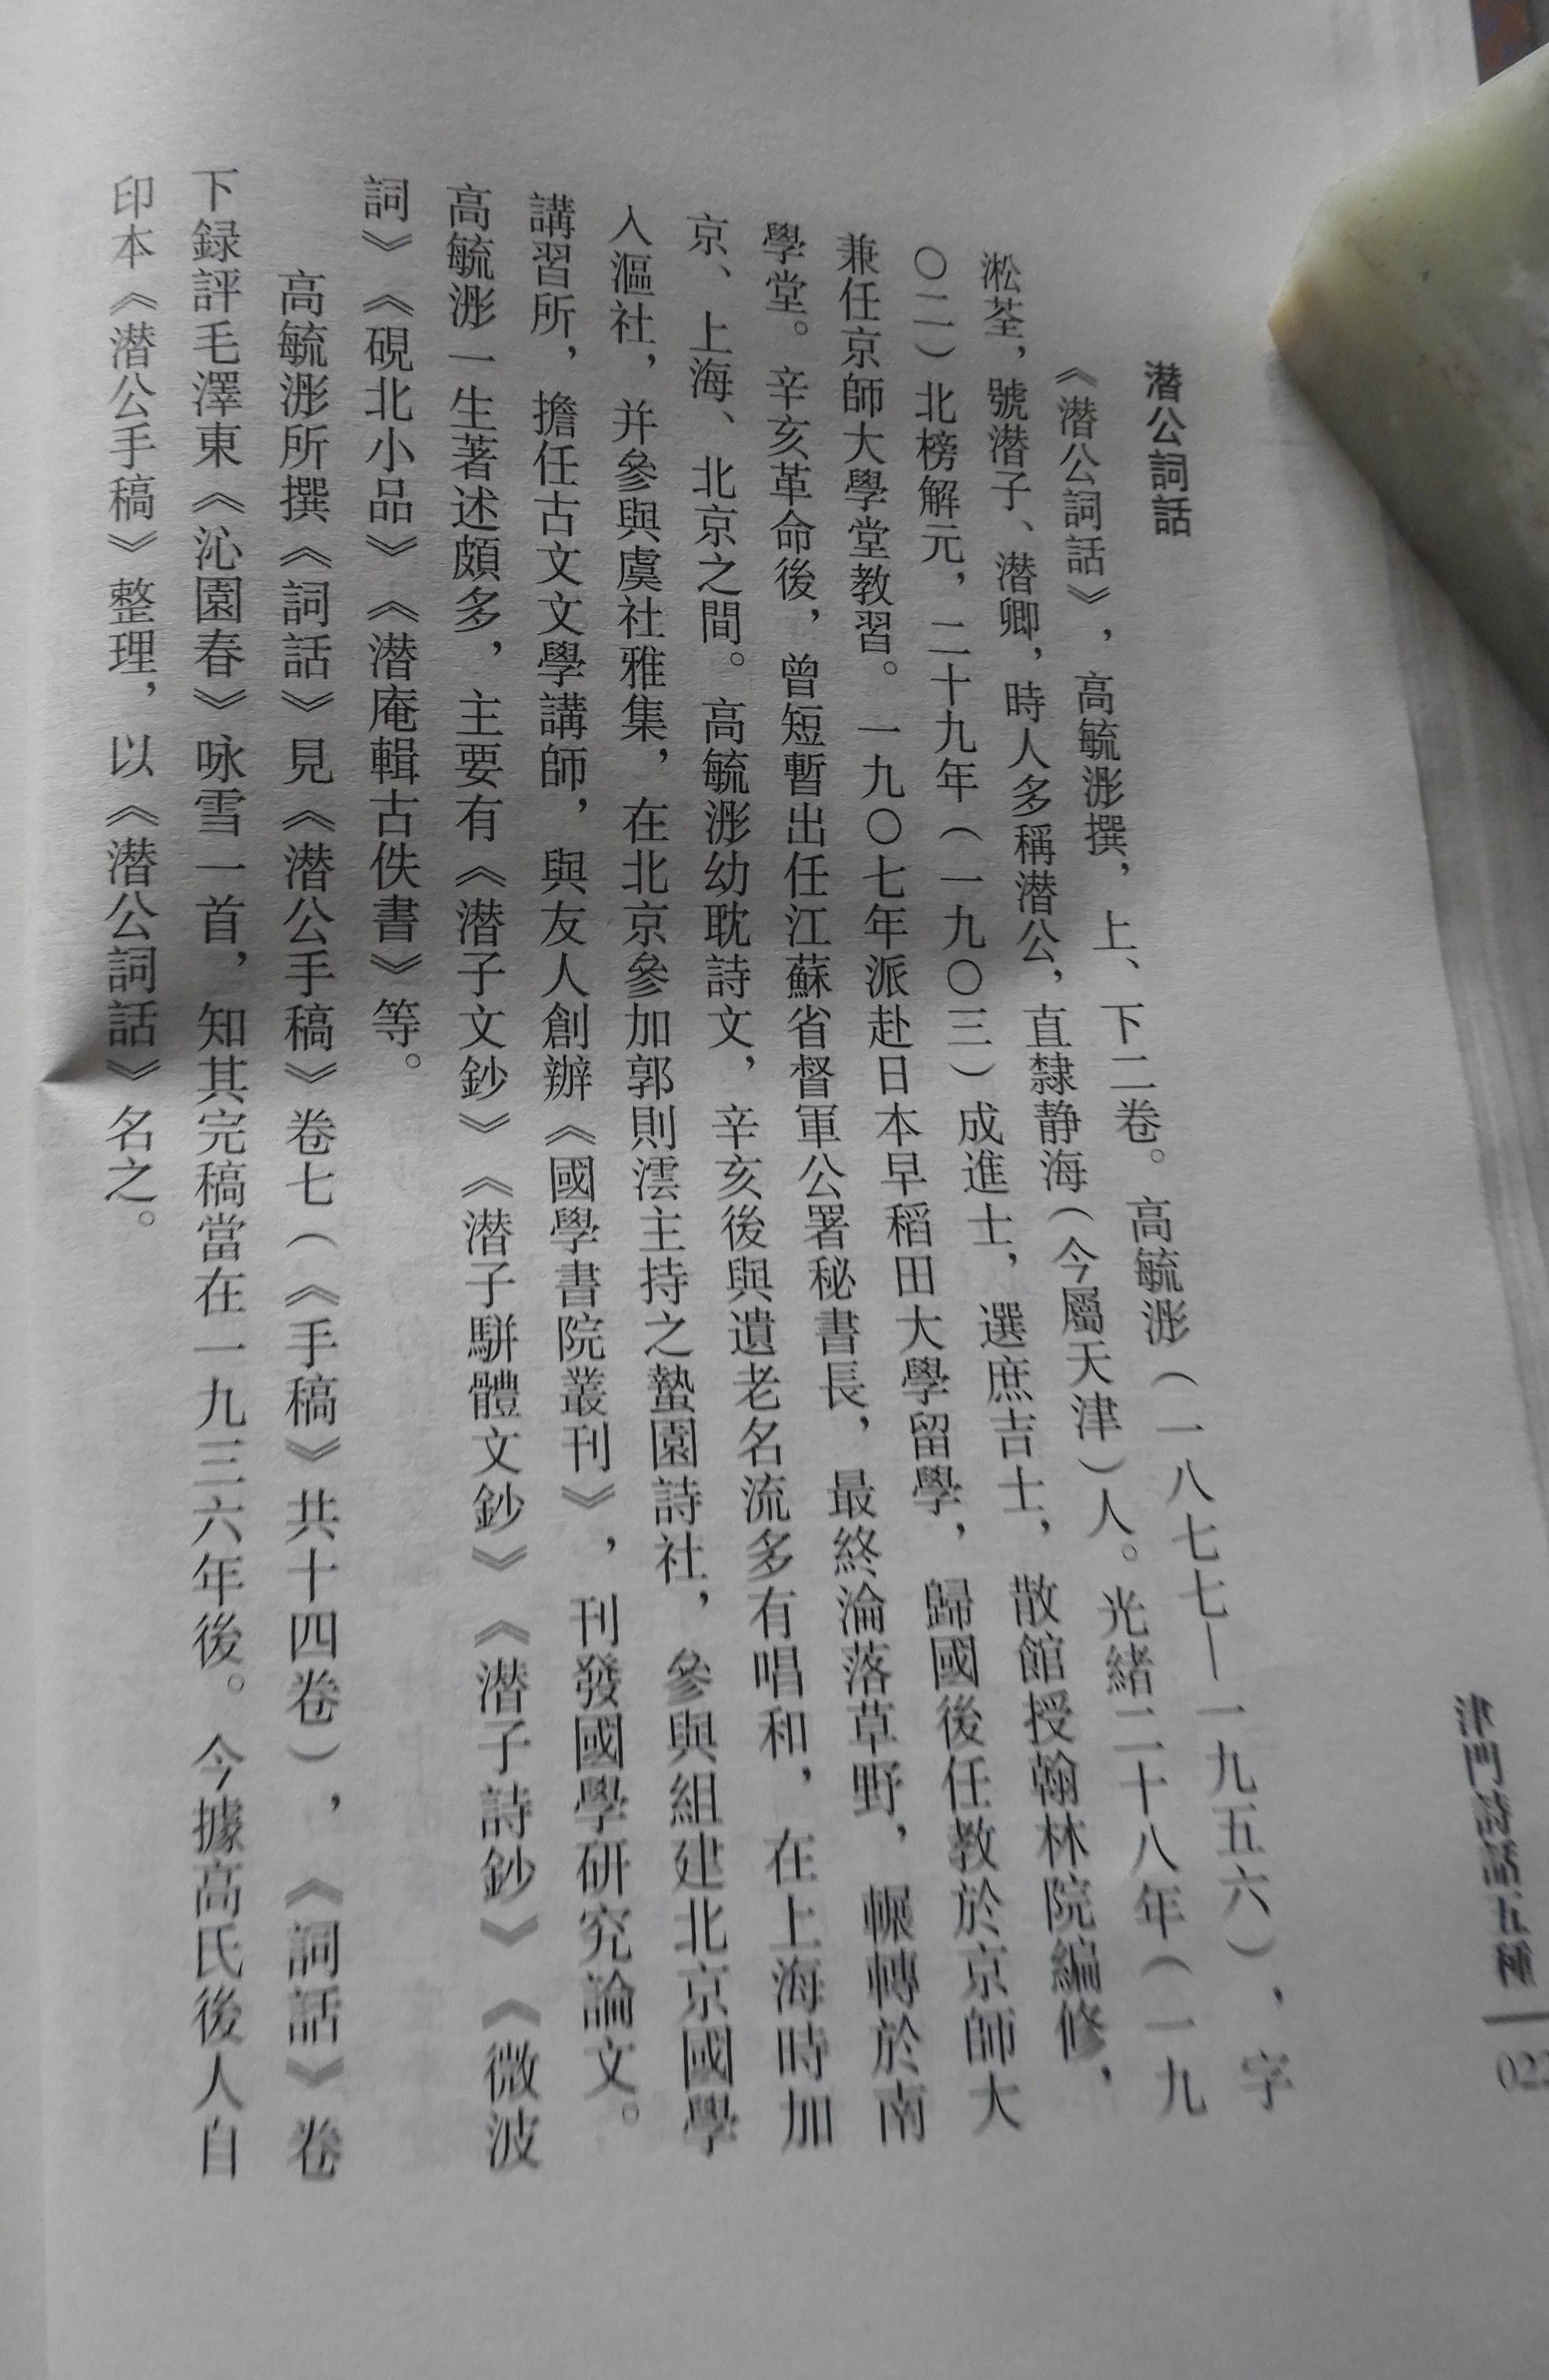 潜公詞話
《潜公詞話》，高毓浵撰，上、下二卷。高毓浵（一八七七—一九五六），字
淞荃，號潜子、潜卿，時人多稱潜公，直隸静海（今屬天津）人。光緒二十八年（一九
〇二）北榜解元，二十九年（一九〇三）成進士，選庶吉士，散館授翰林院編修，
兼任京師大學堂教習。一九〇七年派赴日本早稻田大學留學，歸國後任教於京師大
學堂。辛亥革命後，曾短暫出任江蘇省督軍公署秘書長，最終淪落草野，輾轉於南
京、上海、北京之間。高毓浵幼耽詩文，辛亥後與遺老名流多有唱和，在上海時加
入漚社，并參與虞社雅集，在北京參加郭則澐主持之蟄園詩社，參與組建北京國學
講習所，擔任古文文學講師，與友人創辦《國學書院叢刊》，刊發國學研究論文。
高毓浵一生著述頗多，主要有《潜子文鈔》《潜子駢體文鈔》《潜子詩鈔》《微波
詞》《硯北小品》《潜庵輯古佚書》等。
高毓浵所撰《詞話》見《潜公手稿》卷七（《手稿》共十四卷），《詞話》卷
下録評毛澤東《沁園春》咏雪一首，知其完稿當在一九三六年後。今據高氏後人自
印本《潜公手稿》整理，以《潜公詞話》名之。
津門詩話五種
022